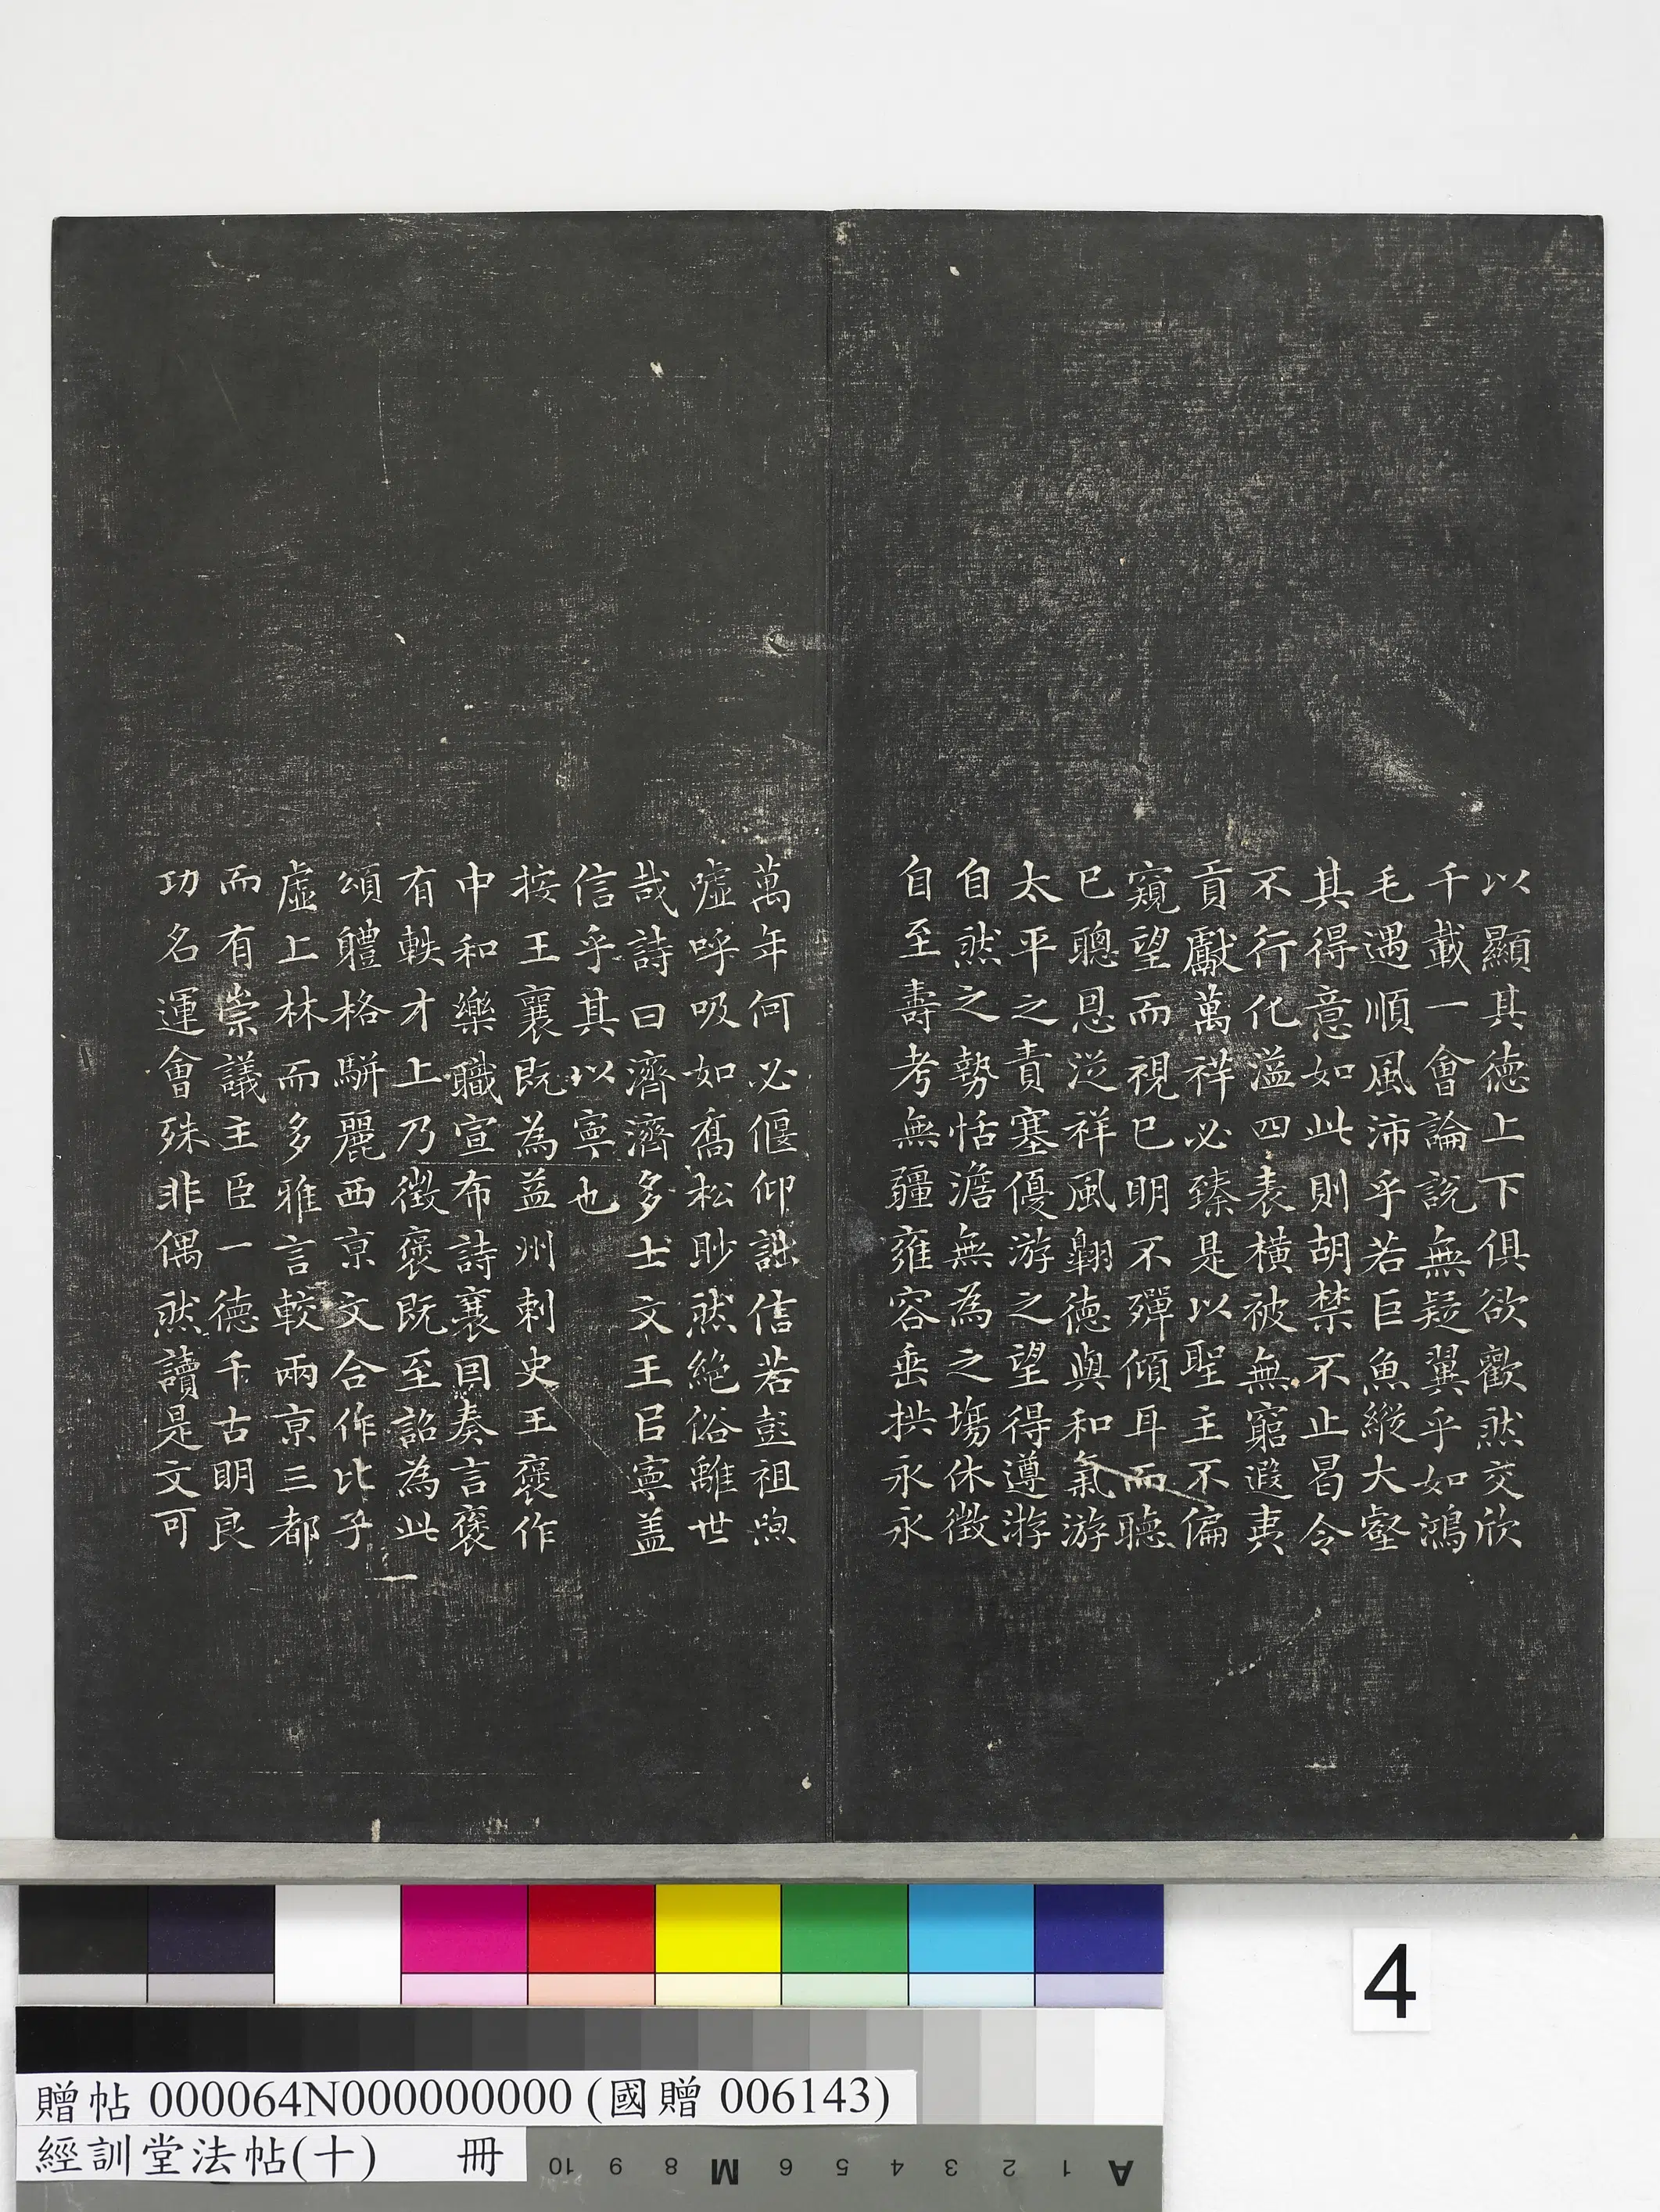 以顯其德上下俱欲歡然交欣
千載一會論說無疑翼乎如鴻
毛遇順風沛乎若巨魚縱大壑
其得意如此則胡禁不止曷令
不行化溢四表橫被無窮遐夷
貢獻萬祥必臻是以聖主不偏
窺望而視已明不殫傾耳而聽
已聰恩從祥風翱德與和氣游
太平之責塞優游之望得遵游
自然之勢恬澹無為之塲休徵
自至壽考無疆雍容垂拱永永
萬年何必偃仰詘信若彭祖喣
噓呼吸如喬松眇然絕俗離世
哉詩曰濟濟多士文王㠯寧蓋
信乎其以寧也
按王襄既為益州刺史王褒作
中和樂職宣布詩襄因奏言褒
有軼才上乃徵褒既至詔為此
頌體格駢麗西京文合作比子
虛上林而多雅言較兩京三都
而有崇議主臣一德千古明良
功名運會殊非偶然讀是文可
4
贈帖 000064N000000000 (國贈 006143)
經訓堂法帖(十) 冊
10 9 8 M 6 5 4 3 2 1 A